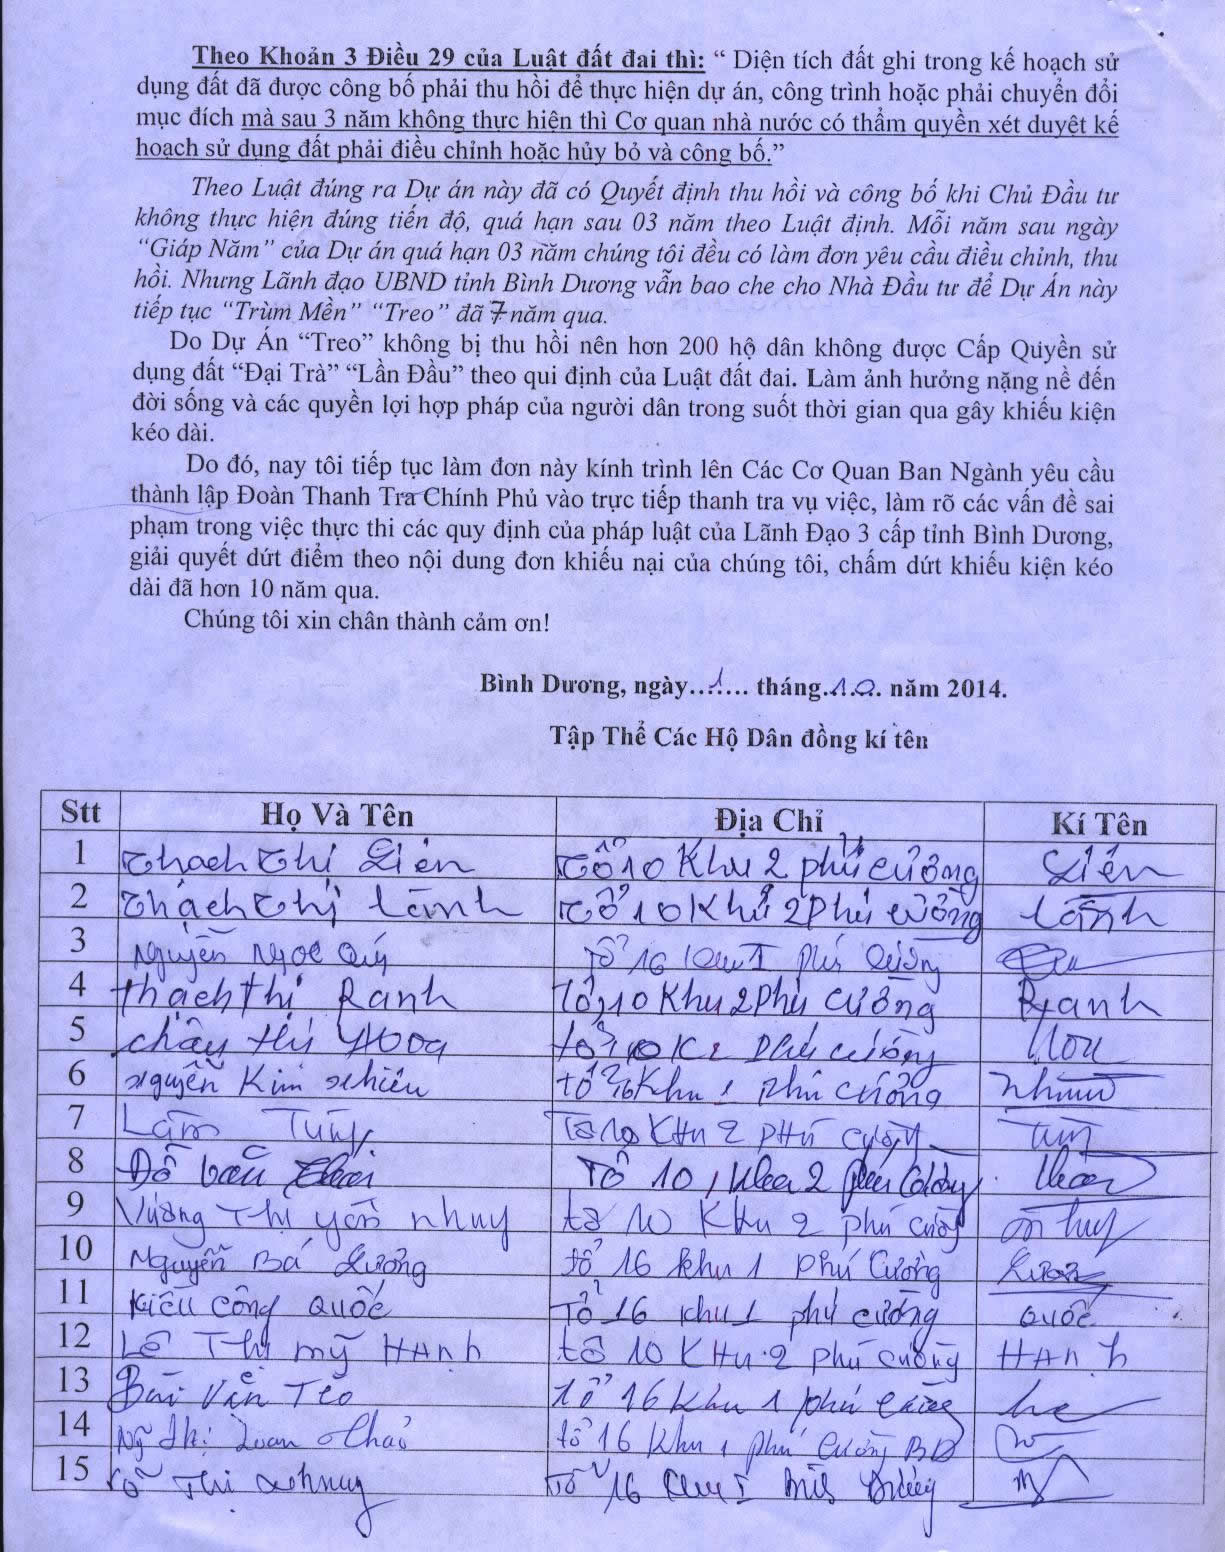 Theo Khoản 3 Điều 29 của Luật đất đai thì: “ Diện tích đất ghi trong kế hoạch sử
dụng đất đã được công bố phải thu hồi để thực hiện dự án, công trình hoặc phải chuyển đổi
mục đích mà sau 3 năm không thực hiện thì Cơ quan nhà nước có thẩm quyền xét duyệt kế
hoạch sử dụng đất phải điều chỉnh hoặc hủy bỏ và công bố.”
Theo Luật đúng ra Dự án này đã có Quyết định thu hồi và công bố khi Chủ Đầu tư
không thực hiện đúng tiến độ, quá hạn sau 03 năm theo Luật định. Mỗi năm sau ngày
“Giáp Năm” của Dự án quá hạn 03 năm chúng tôi đều có làm đơn yêu cầu điều chỉnh, thu
hồi. Nhưng Lãnh đạo UBND tỉnh Bình Dương vẫn bao che cho Nhà Đầu tư để Dự Án này
tiếp tục “Trùm Mền” “Treo” đã 7 năm qua.
Do Dự Án “Treo” không bị thu hồi nên hơn 200 hộ dân không được Cấp Quyền sử
dụng đất “Đại Trà” “Lần Đầu” theo qui định của Luật đất đai. Làm ảnh hưởng nặng nề đến
đời sống và các quyền lợi hợp pháp của người dân trong suốt thời gian qua gây khiếu kiện
kéo dài.
Do đó, nay tôi tiếp tục làm đơn này kính trình lên Các Cơ Quan Ban Ngành yêu cầu
thành lập Đoàn Thanh Tra Chính Phủ vào trực tiếp thanh tra vụ việc, làm rõ các vấn đề sai
phạm trong việc thực thi các quy định của pháp luật của Lãnh Đạo 3 cấp tỉnh Bình Dương,
giải quyết dứt điểm theo nội dung đơn khiếu nại của chúng tôi, chấm dứt khiếu kiện kéo
dài đã hơn 10 năm qua.
Chúng tôi xin chân thành cảm ơn!
Bình Dương, ngày...1.... tháng.10. năm 2014.
Tập Thể Các Hộ Dân đồng kí tên
Stt Họ Và Tên Địa Chỉ Kí Tên
1 Thạch Thị Liên Tổ 10 Khu 2 phú cường Liên
2 Thạch Thị Lành Tổ 10 Khu 2 Phú cường Lành
3 Nguyễn Ngọc Quý Tổ 16 khu I phú Cường
4 Thạch Thị Ranh Tổ 10 Khu 2 Phú cường Ranh
5 châu thị Hoa tổ 10 K2 phú cường Hoa
6 Nguyễn Kim Nhiều tổ 16 Khu 1 phú cường Nhiều
7 Lâm Tùng Tổ 10 KHu 2 PHÚ cường Tùng
8 Đỗ văn Tổ 10, khu 2 phú Cường
9 Vương Thị yến nhuy tổ 10 KHu 2 phú cường
10 Nguyễn Bá Lương tổ 16 khu 1 phú Cường Lương
11 Kiều công Quốc Tổ 16 khu 1 phú cường Quốc
12 Lê Thị mỹ HAnh tổ 10 KHu 2 phú cường HAnh
13 Bùi Văn Tèo Tổ 16 khu 1 phú cường
14 tổ 16 khu 1 phú cường BD
15 Thị Tổ 16 khu I